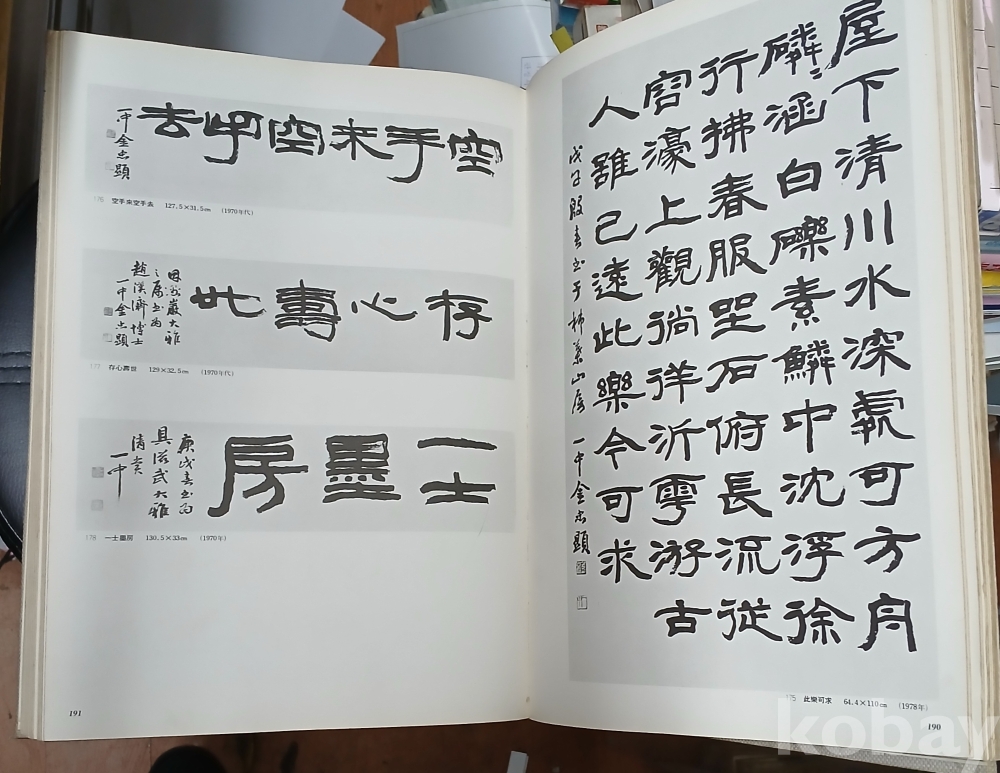 屋下清川水深處可方舟
磷〻涵白礫素鱗中沈浮徐
行拂春服坐石俯長流從
容濠上觀徜徉沂雩游古
人雖已遠此樂今可求
戊午殷春書于柿葉山房 一中金忠顯
175 此樂可求 64.4×110㎝ (1978年)
190
空手来空手去
一中金忠顯
176 空手来空手去 127.5×31.5㎝ (1970年代)
存心壽世
巖大雅
之屬書為
趙漢濟博士
一中金忠顯
177 存心壽世 129×32.5㎝ (1970年代)
一士墨房
庚戌春書為
具滋武大雅
清賞
一中
178 一士墨房 130.5×33㎝ (1970年)
191
kobay